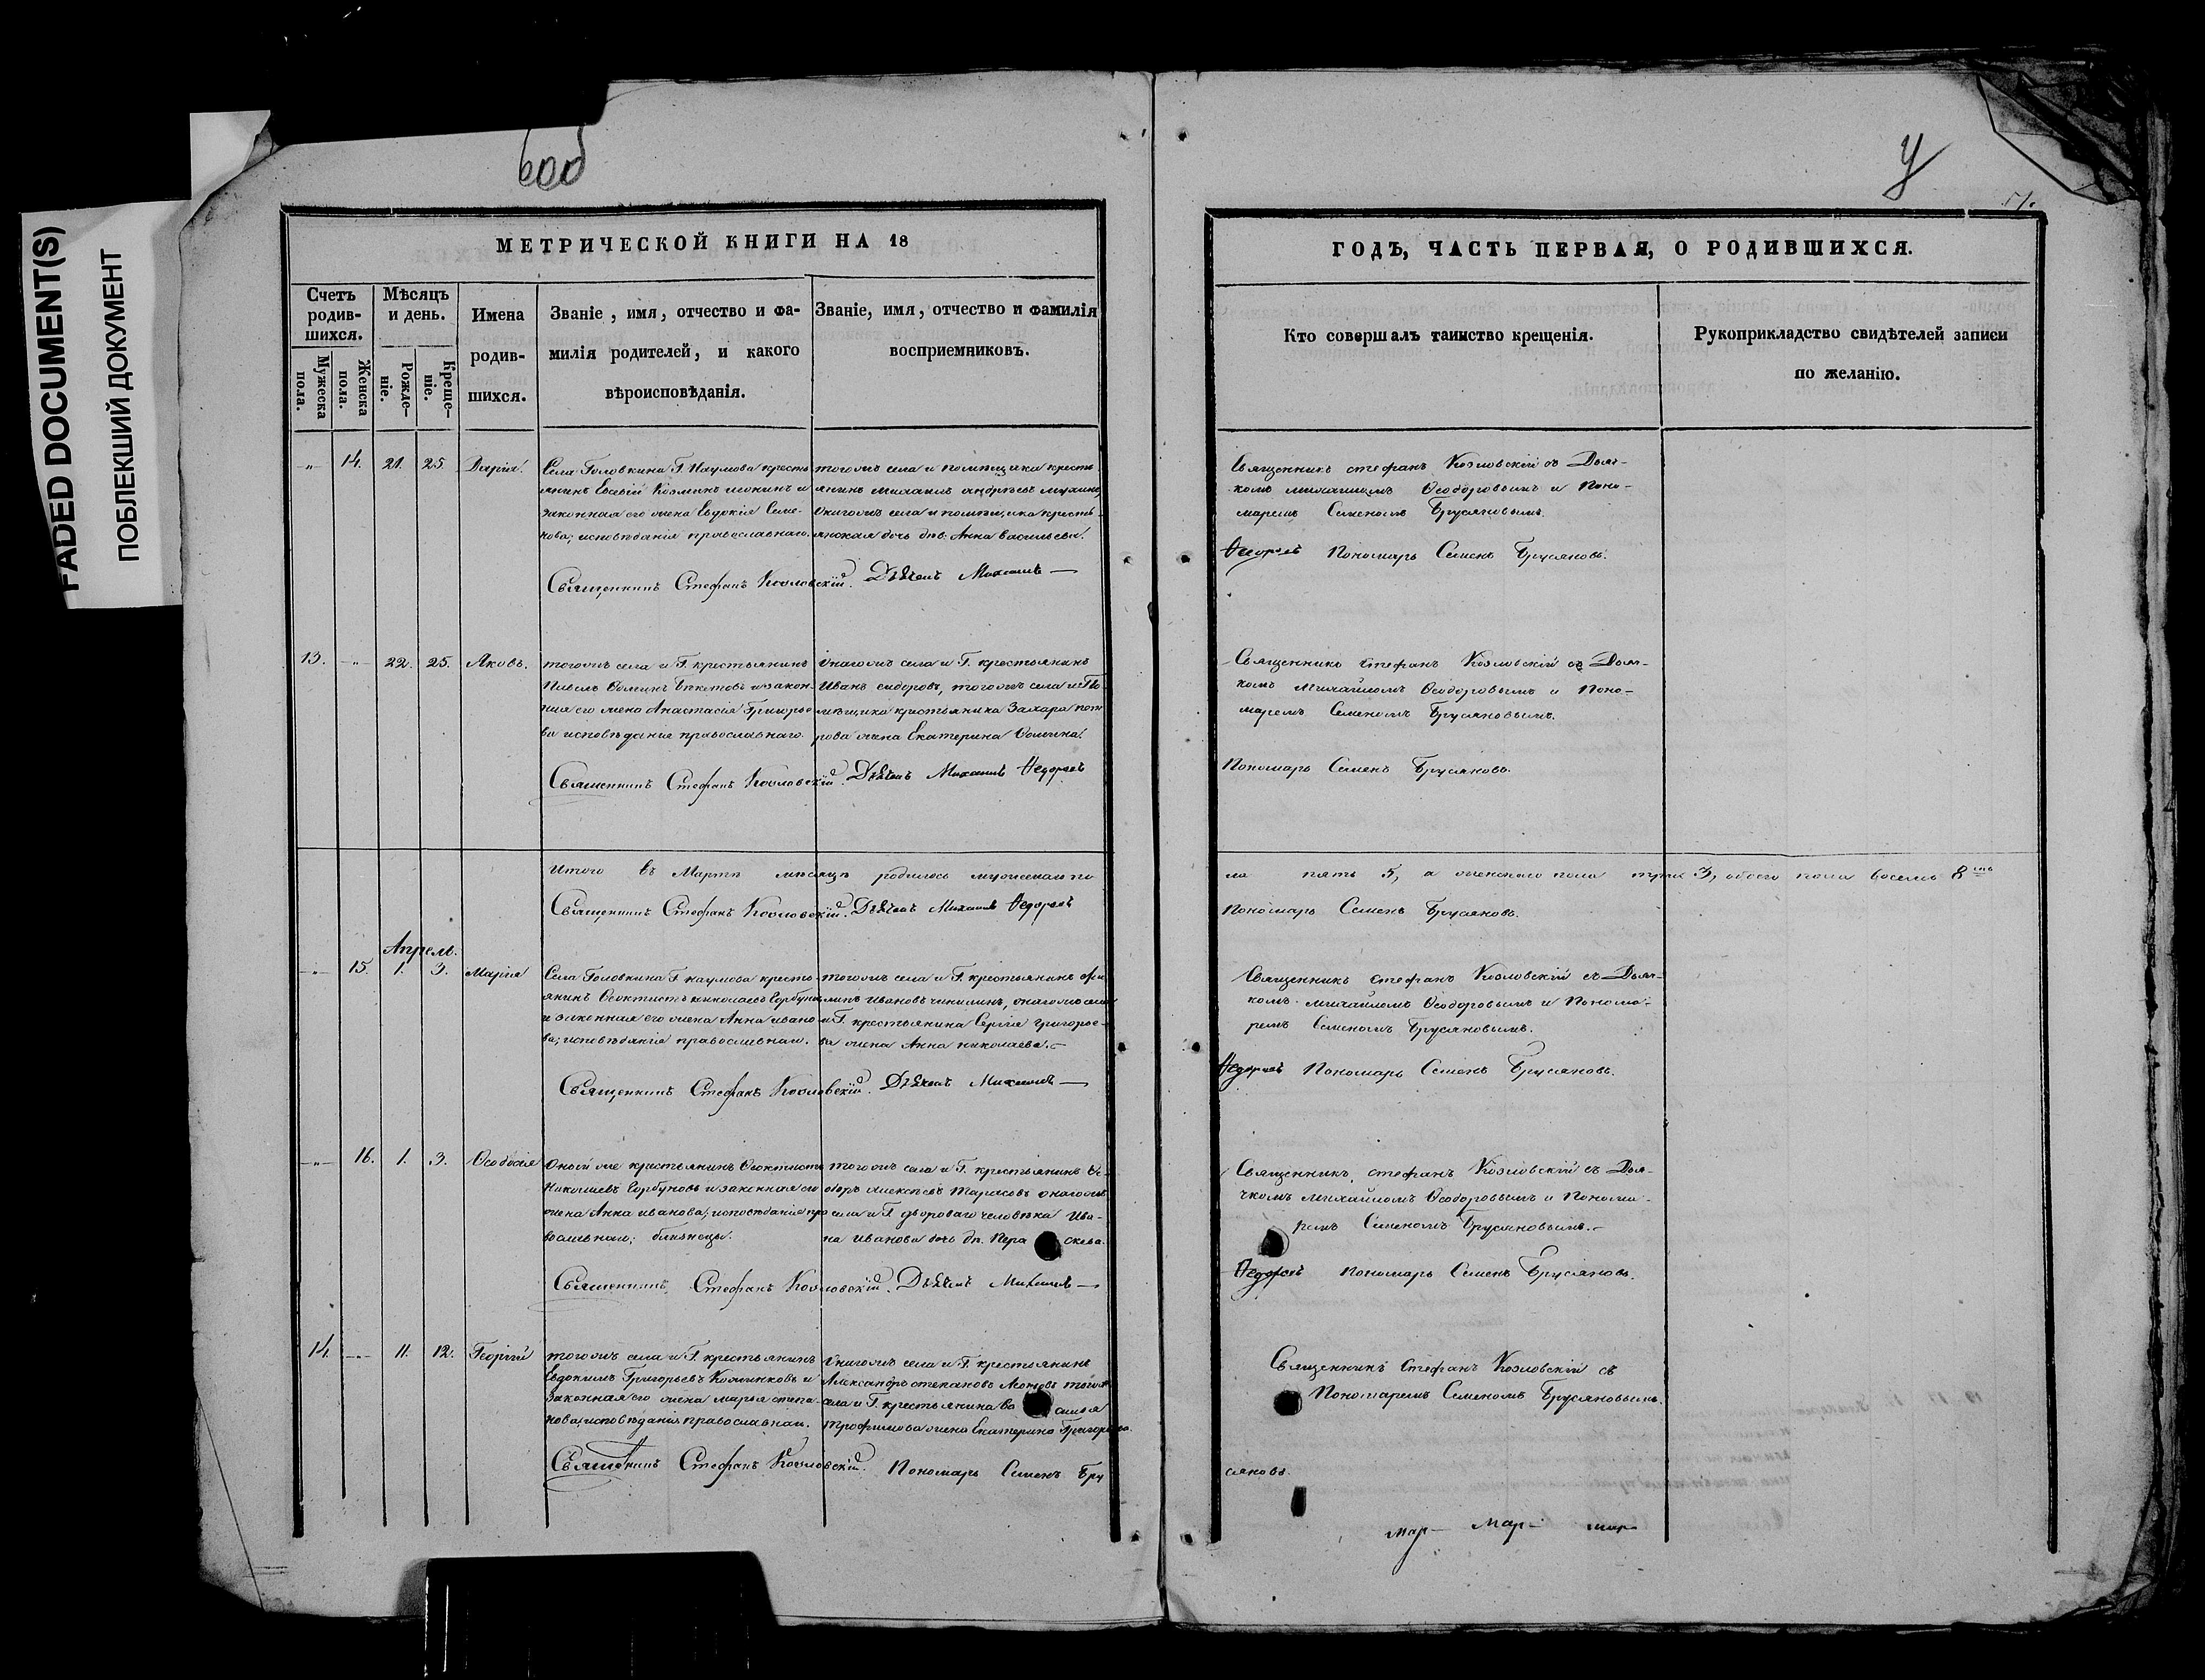 FADED DOCUMENT(S)
ПОБЛЕКШИЙ ДОКУМЕНТ
МЕТРИЧЕСКОЙ КНИГИ НА 18
Счетъ родив-шихся.
Мужеска пола.
Женска пола.
Мѣсяцъ и день.
Рожде-ніе.
Креще-ніе.
Имена
родив-
шихся.
Званіе, имя, отчество и фа-
милія родителей, и какого
вѣроисповѣданія.
Званіе, имя, отчество и фамилія
восприемниковъ.
14. 21. 25. Дарія.
Села Головкина Г. Наумова кресть
янинъ Евсевій Козминъ и
законная его жена Евдокія Семе-
нова; исповѣданія православнаго.
тогожъ села и помѣщика кресть
янинъ Михаилъ Андреевъ
онагожъ села и помѣщика кресть-
янская дочь дѣв. Анна Васильева.
Священникъ Стефанъ Козловскій. Дьячекъ Михаилъ
13. 22. 25. Яковъ.
тогожъ села и Г. крестьянинъ
Павелъ Фоминъ Бекетовъ и закон-
ная его жена Анастасія Григорье
ва исповѣданія православнаго.
онагожъ села и Г. крестьянинъ
Иванъ Сидоровъ, тогожъ села и По-
мѣщика крестьянина Захара
рова жена Екатерина Фомина.
Священникъ Стефанъ Козловскій. Дьячекъ Михаилъ Федоровъ
Итого въ Мартѣ мѣсяцѣ родилось мужескаго по
Священникъ Стефанъ Козловскій. Дьячекъ Михаилъ Федоровъ
Апрель.
15. 1. 3. Марія
Села Головкина Г. Наумова кресть-
янинъ Феоктистъ Николаевъ Горбуновъ
и законная его жена Анна Ивано-
ва; исповѣданія православнаго.
тогожъ села и Г. крестьянинъ Фи
липъ Ивановъ Чикилинъ, онагожъ села
и Г. крестьянина Сергія Григорье-
ва жена Анна Николаева.
Священникъ Стефанъ Козловскій. Дьячекъ Михаилъ
16. 1. 3. Феодосія
Оный же крестьянинъ Феоктистъ
Николаевъ Горбуновъ и законная его
жена Анна Иванова; исповѣданія пра
вославнаго; близнецы.
тогожъ села и Г. крестьянинъ Фе-
одоръ Алексѣевъ Тарасовъ онагожъ
села и Г. двороваго человѣка Ива-
на Иванова дочь дѣв. Параскева.
Священникъ Стефанъ Козловскій. Дьячекъ Михаилъ
14. 11. 12. Георгій
тогожъ села и Г. крестьянинъ
Евдокимъ Григорьевъ Калинковъ и
законная его жена Марья Степа-
нова; исповѣданія православнаго.
онагожъ села и Г. крестьянинъ
Александръ Степановъ тогожъ
села и Г. крестьянина Василья
Трофимова жена Екатерина Григорьева.
Священникъ Стефанъ Козловскій. Пономарь Семенъ Бру
ГОДЪ, ЧАСТЬ ПЕРВАЯ, О РОДИВШИХСЯ.
Кто совершалъ таинство крещенія.
Рукоприкладство свидѣтелей записи
по желанію.
Священникъ Стефанъ Козловскій съ Дьяч-
комъ Михаиломъ Феодоровымъ и Поно-
маремъ Семеномъ Брусяновымъ.
Федоровъ Пономарь Семенъ Брусяновъ.
Священникъ Стефанъ Козловскій съ Дьяч-
комъ Михайломъ Феодоровымъ и Поно-
маремъ Семеномъ Брусяновымъ.
Пономарь Семенъ Брусяновъ.
ла пять 5, а женскаго пола три 3, обоего пола восемь 8
Пономарь Семенъ Брусяновъ.
Священникъ Стефанъ Козловскій съ Дьяч-
комъ Михайломъ Феодоровымъ и Понома-
ремъ Семеномъ Брусяновымъ.
Федоровъ Пономарь Семенъ Брусяновъ.
Священникъ Стефанъ Козловскій съ Дья-
чкомъ Михайломъ Феодоровымъ и Понома-
ремъ Семеномъ Брусяновымъ.
Федоровъ Пономарь Семенъ Брусяновъ.
Священникъ Стефанъ Козловскій съ
Пономаремъ Семеномъ Брусяновымъ.
сяновъ.
мар- мар- мар-